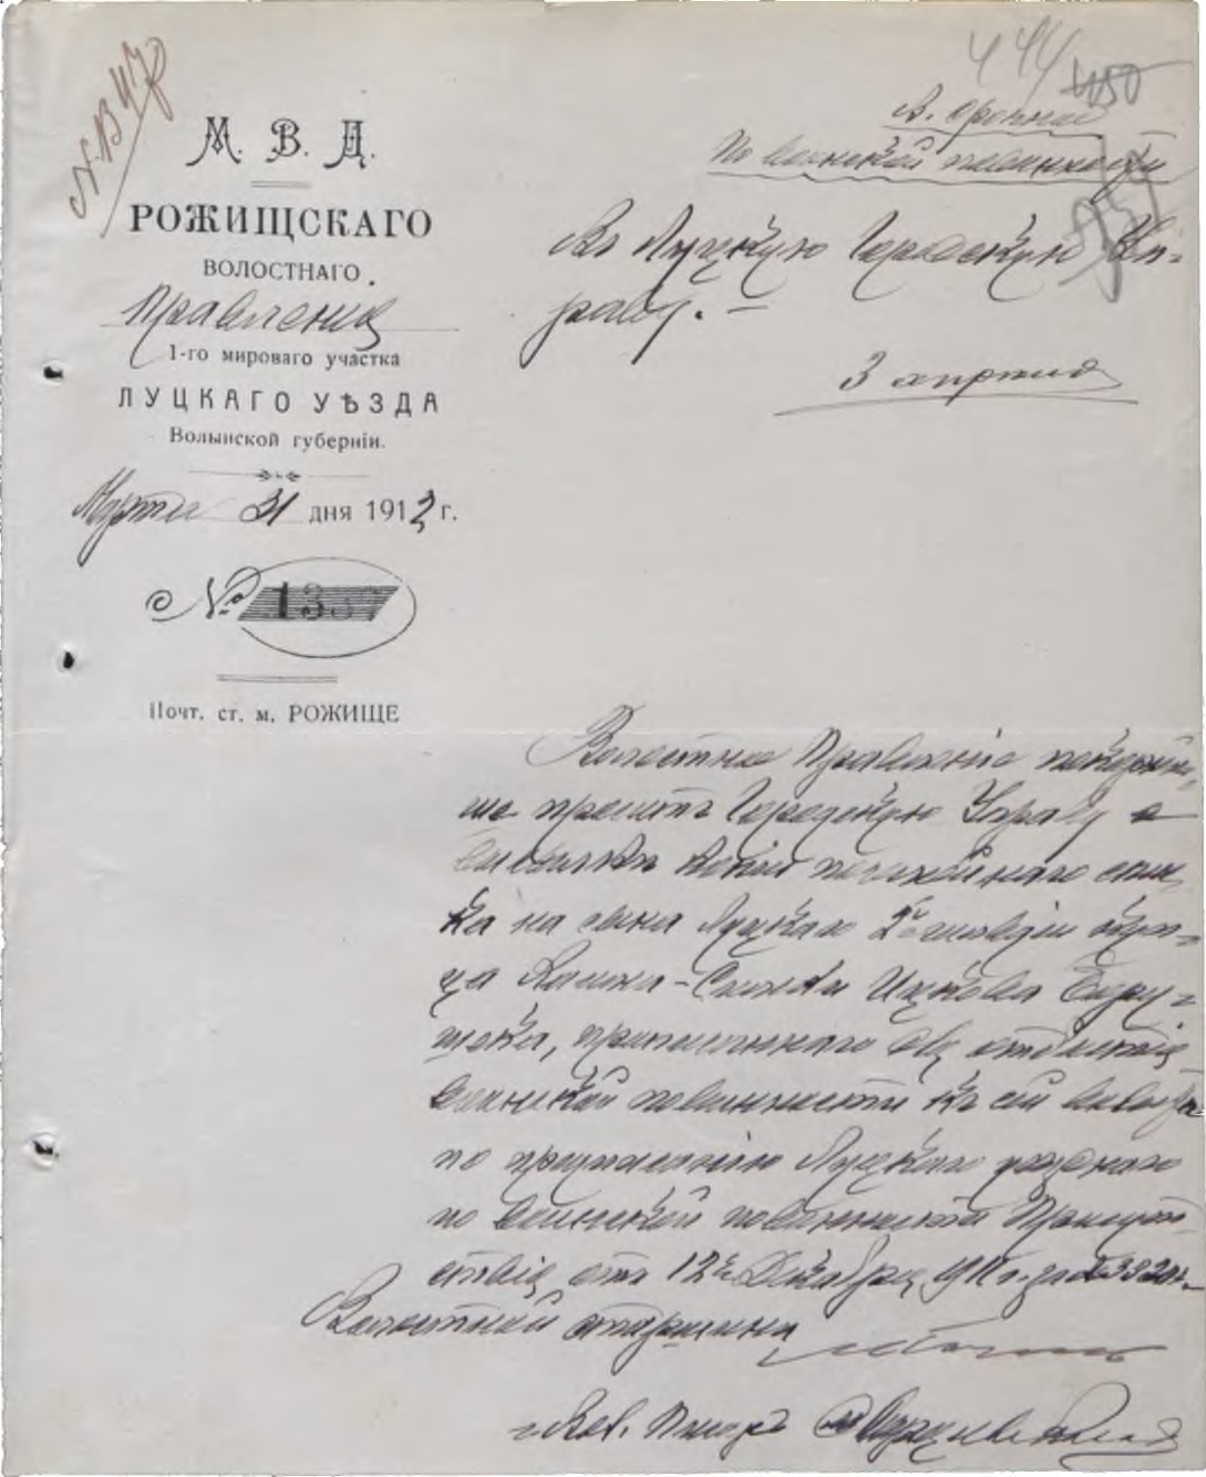 444
450
М. В. Д.
РОЖИЩСКАГО
ВОЛОСТНАГО
Правленія
1-го мироваго участка
ЛУЦКАГО УѢЗДА
Волынской губерніи.
Марта 31 дня 1912 г.
№ 1337
Почт. ст. м. РОЖИЩЕ
В. срочное
По воинской повинности
Въ Луцкую Городскую Уп-
раву. -
3 апреля
Волостное Правленіе покорнѣй-
ше проситъ Городскую Управу о
высылкѣ копіи посемейнаго спис
ка на сына Луцкаго
ца Ицкова
приписаннаго для отбытія
воинской повинности къ сей волости
по предписанію Луцкаго уѣзднаго
по воинской повинности Присут-
ствія отъ 12го Декабря 1911 г. за № 3320.
Волостной старшина
Вол. Писарь